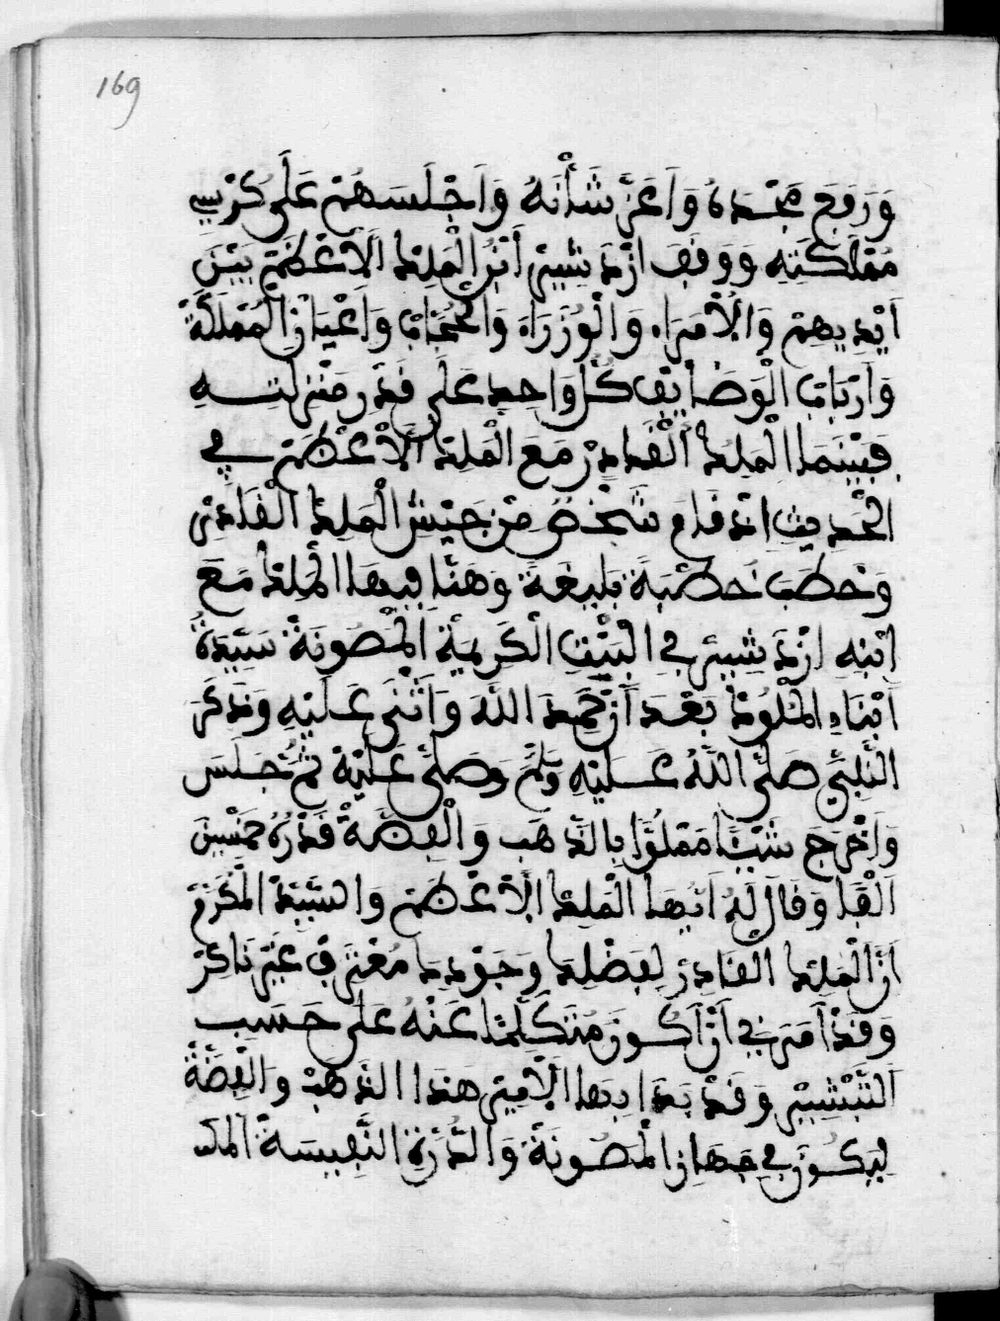 169
وَرَفَعَ مَجْدَهُ وَاَعَزَّ شَأْنَهُ وَاَجْلَسَهُمْ عَلَى كُرْسِي
مَمْلَكَتِهِ وَوَقَفَ ازْدَ شِيرْ ابْنُ الْمَلِكِ الاَعْظَمِ بَيْنَ
اَيْدِيهِمْ وَالْاُمَرَاء وَالْوُزَرَاء وَالْحُجَّاب وَاَعْيَان الْمَمْلَكَةْ
وَاَرْبَاب الْوَضَايِف كُلُّ وَاحِدٍ عَلَى قَدْرِ مَنْزِلَتِهِ
فَبَيْنَمَا الْمَلِكُ الْقَادِرْ مَعَ الْمَلِكِ الْاَعْظَمْ فِي
الْحَدِيث اذ قَامَ شَخْصٌ مِنْ جَيْشِ الْمَلِكِ الْقَادِرْ
وَخَطَبَ خَطْبَةً بَلِيغَةً وَهَنَّا فِيهَا الْمَلِكَ مَعَ
ابْنِهِ ازْدَ شِيرْ فِي الْبِنْتِ الْكَرِيمَةِ الْمَصُونَةْ سَيِّدَةُ
اَبْنَاءِ الْمُلُوكْ بَعْدَ اَنْ حَمِدَ اللهَ وَاَثْنَى عَلَيْهِ وَذَكَرَ
النَّبِيَّ صَلَّى اللهُ عَلَيْهِ وَسَلَّمْ وَصَلَّى عَلَيْهِ ثُمَّ جَلَسَ
وَاَخْرَجَ شَيْئًا مَمْلُوًّا بِالذَّهَب وَالْفِضَّةْ قَدْرُهُ خَمْسِينَ
اَلْفًا وَقَالَ لَهُ اَيُّهَا الْمَلِك الْاَعْظَمْ وَالسَّيِّدْ الْمُكَرَّمْ
اَنَّ الْمَلِكَ الْقَادِرْ لِفَضْلِكَ وَجُودِكَ مُعْتَرِف غَيْرَ نَاكِرْ
وَقَدْ اَمَرَنِي اَنْ اَكُونَ مُتَكَلِّمًا عَنْهُ عَلَى حَسَبِ
التَّبْشِيرْ وَقَدْ بَدَا بِهَا الْاَمِيرْ هَذَا الذَّهَبْ وَالْفِضَّةْ
لِيَكُونَ فِي جِهَازِ الْمَصُونَةْ وَالدُّرَّةِ النَّفِيسَةْ